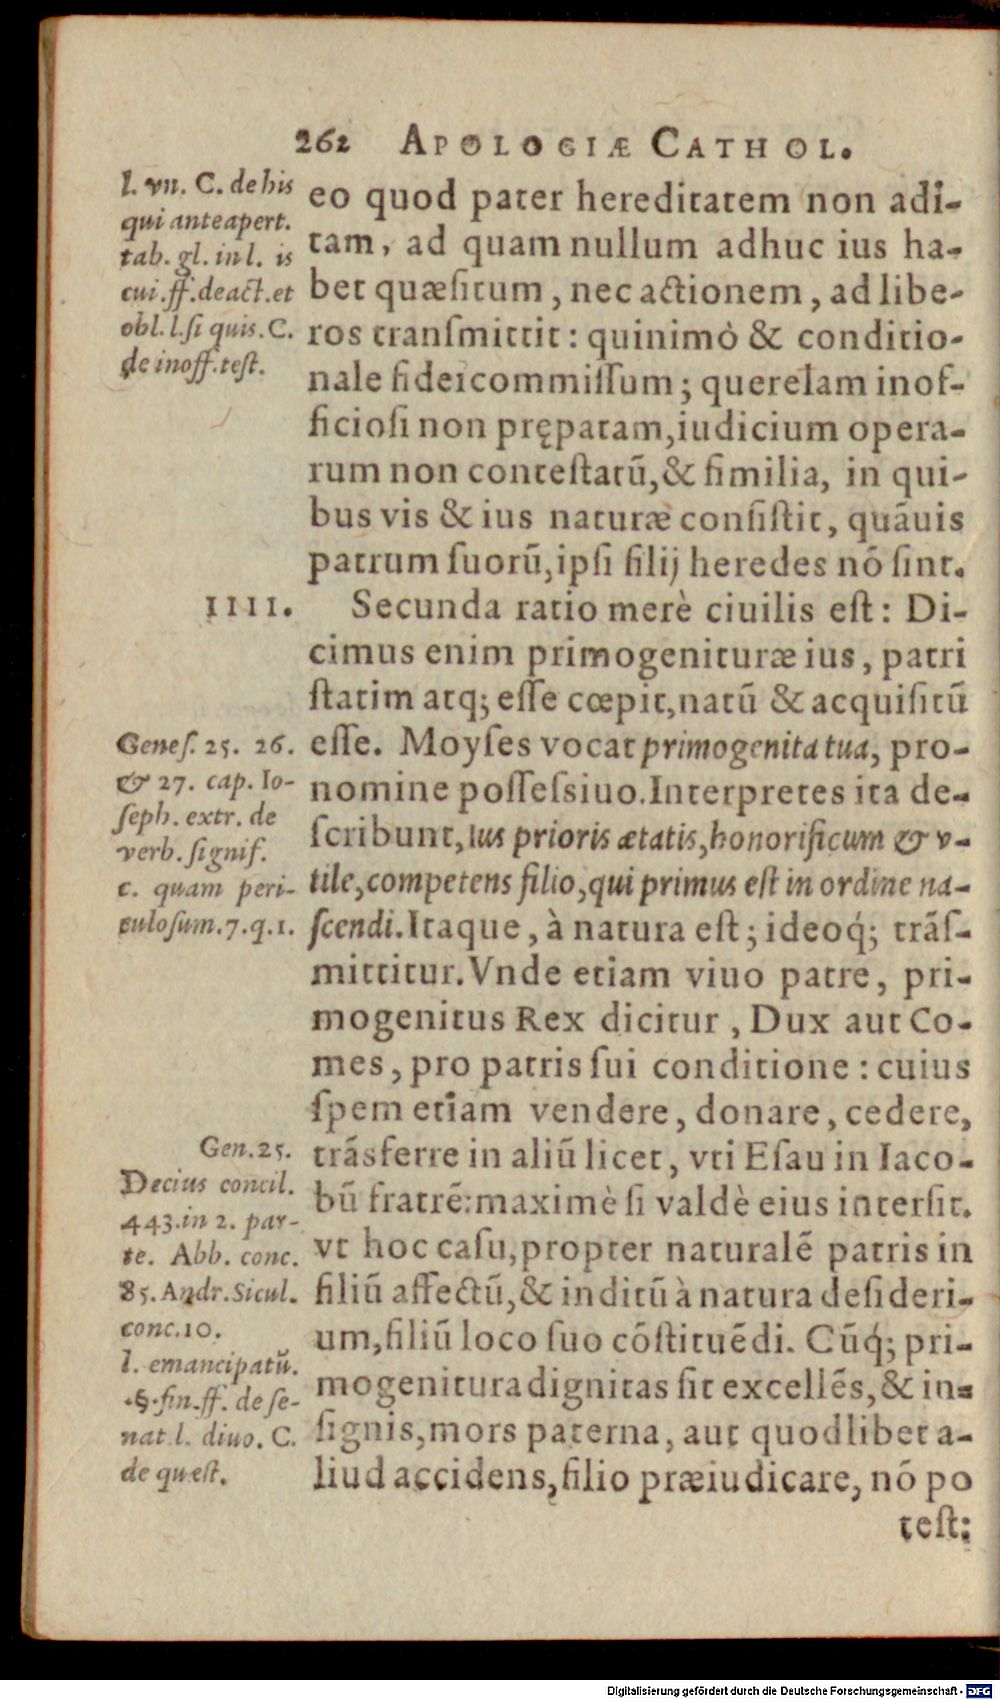 262 APOLOGIÆ CATHOL.
l. vn. C. de his
qui ante apert.
tab. gl. in l. is
cui .ff. de act. et
obl. l. si quis. C.
de inoff. test.
eo quod pater hereditatem non adi-
tam, ad quam nullum adhuc ius ha-
bet quæſitum, nec actionem, ad libe-
ros tranſmittit: quinimò & conditio-
nale fideicommiſſum; querelam inof-
ficioſi non pręparam, iudicium opera-
rum non conteſtatū, & ſimilia, in qui-
bus vis & ius naturæ conſiſtit, quāuis
patrum ſuorū, ipſi filij heredes nō ſint.
IIII. Secunda ratio merè ciuilis eſt: Di-
cimus enim primogenituræ ius, patri
ſtatim atq; eſſe cœpit, natū & acquiſitū
eſſe. Moyſes vocat primogenita tua, pro-
nomine poſſeſsiuo. Interpretes ita de-
ſcribunt, Ius prioris ætatis, honorificum & v-
tile, competens filio, qui primus eſt in ordine na-
ſcendi. Itaque, à natura eſt; ideoq́; trāſ-
mittitur. Vnde etiam viuo patre, pri-
mogenitus Rex dicitur, Dux aut Co-
mes, pro patris ſui conditione: cuius
ſpem etiam vendere, donare, cedere,
trāsferre in aliū licet, vti Eſau in Iaco-
bū fratrē: maximè ſi valdè eius interſit.
vt hoc caſu, propter naturalē patris in
filiū affectū, & inditū à natura deſideri-
um, filiū loco ſuo cōſtituēdi. Cūq́; pri-
mogenitura dignitas ſit excellēs, & in-
ſignis, mors paterna, aut quodlibet a-
liud accidens, filio præiudicare, nō po
teſt:
Geneſ. 25. 26.
& 27. cap. Io-
ſeph. extr. de
verb. ſignif.
c. quam peri-
culoſum. 7. q. 1.
Gen. 25.
Decius concil.
443. in 2. par-
te. Abb. conc.
85. Andr. Sicul.
conc. 10.
l. emancipatū.
.§. fin. ff. de ſe-
nat. l. diuo. C.
de quæſt.
Digitalisierung gefördert durch die Deutsche Forschungsgemeinschaft - DFG